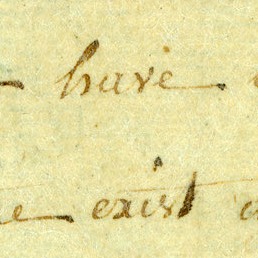 have
exist